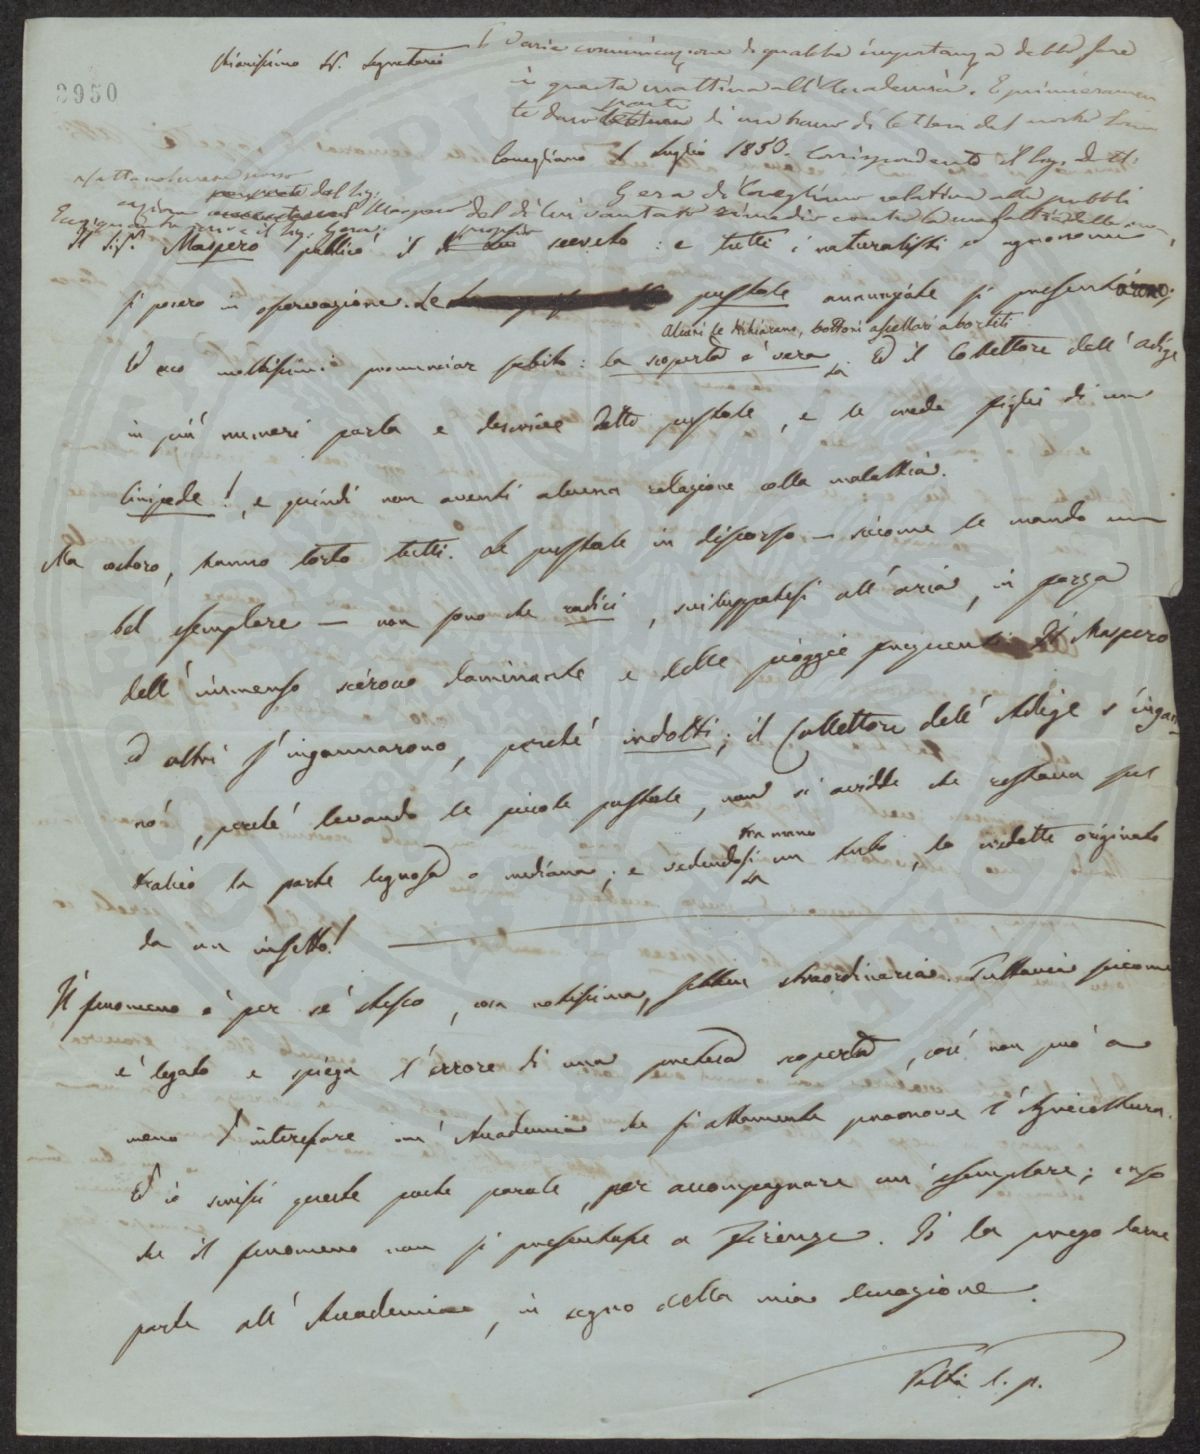 Chiarissimo Sr. Segretario
Varie comunicazione di qualche importanza debbo fare
in questa mattina all'Accademia. E primieramen
te darò parte di un brano di lettera del nostro Socio
3950
Conegliano 1 Luglio 1850. Corrispondente il Sig. Dott.
Gera di Conegliano relativa alla pubbli
cazione del Sig. Maspero del di lui vantato rimedio contro la malattia delle uve,
il Sig. Gera:
Il Sigr. Maspero pubblicò il suo secreto: e tutti i naturalisti ed agronomi
si posero in osservazione. Le pustole annunziate si presentarono.
Alcuni le dichiarano, bottoni ascellari abortiti
Ed ecco moltissimi pronunciar subito: la scoperta è vera. Ed il Collettore dell'Adige
in più numeri parla e descrive dette pustole, e le crede figlie di un
Cinipede!, e quindi non aventi alcuna relazione colla malattia.
Ma costoro, hanno torto tutti. Le pustole in discorso — siccome le mando un
bel esemplare — non sono che radici, sviluppatesi all'aria, in forza
dell'immenso scirocco dominante e delle pioggie frequenti. Il Maspero
ed altri s'ingannarono, perché indotti; il Collettore dell'Adige s'ingan-
nò, perché levando le piccole pustole, non si avvidde che restava sul
tralcio la parte legnosa o mediana; e vedendosi tra mano un tubo, lo credette originato
da un insetto!
Il fenomeno è per sé stesso, cosa notissima, sebben straordinaria. Tuttavia siccome
è legato e spiega l'errore di una pretesa scoperta, così non può a
meno d'interessare un'Accademia che sì altamente promove l'Agricoltura.
Ed io scrissi queste poche parole, per accompagnare un'esemplare; caso
che il fenomeno non si presentasse a Firenze. Io la prego darne
parte all'Accademia, in segno della mia devozione.